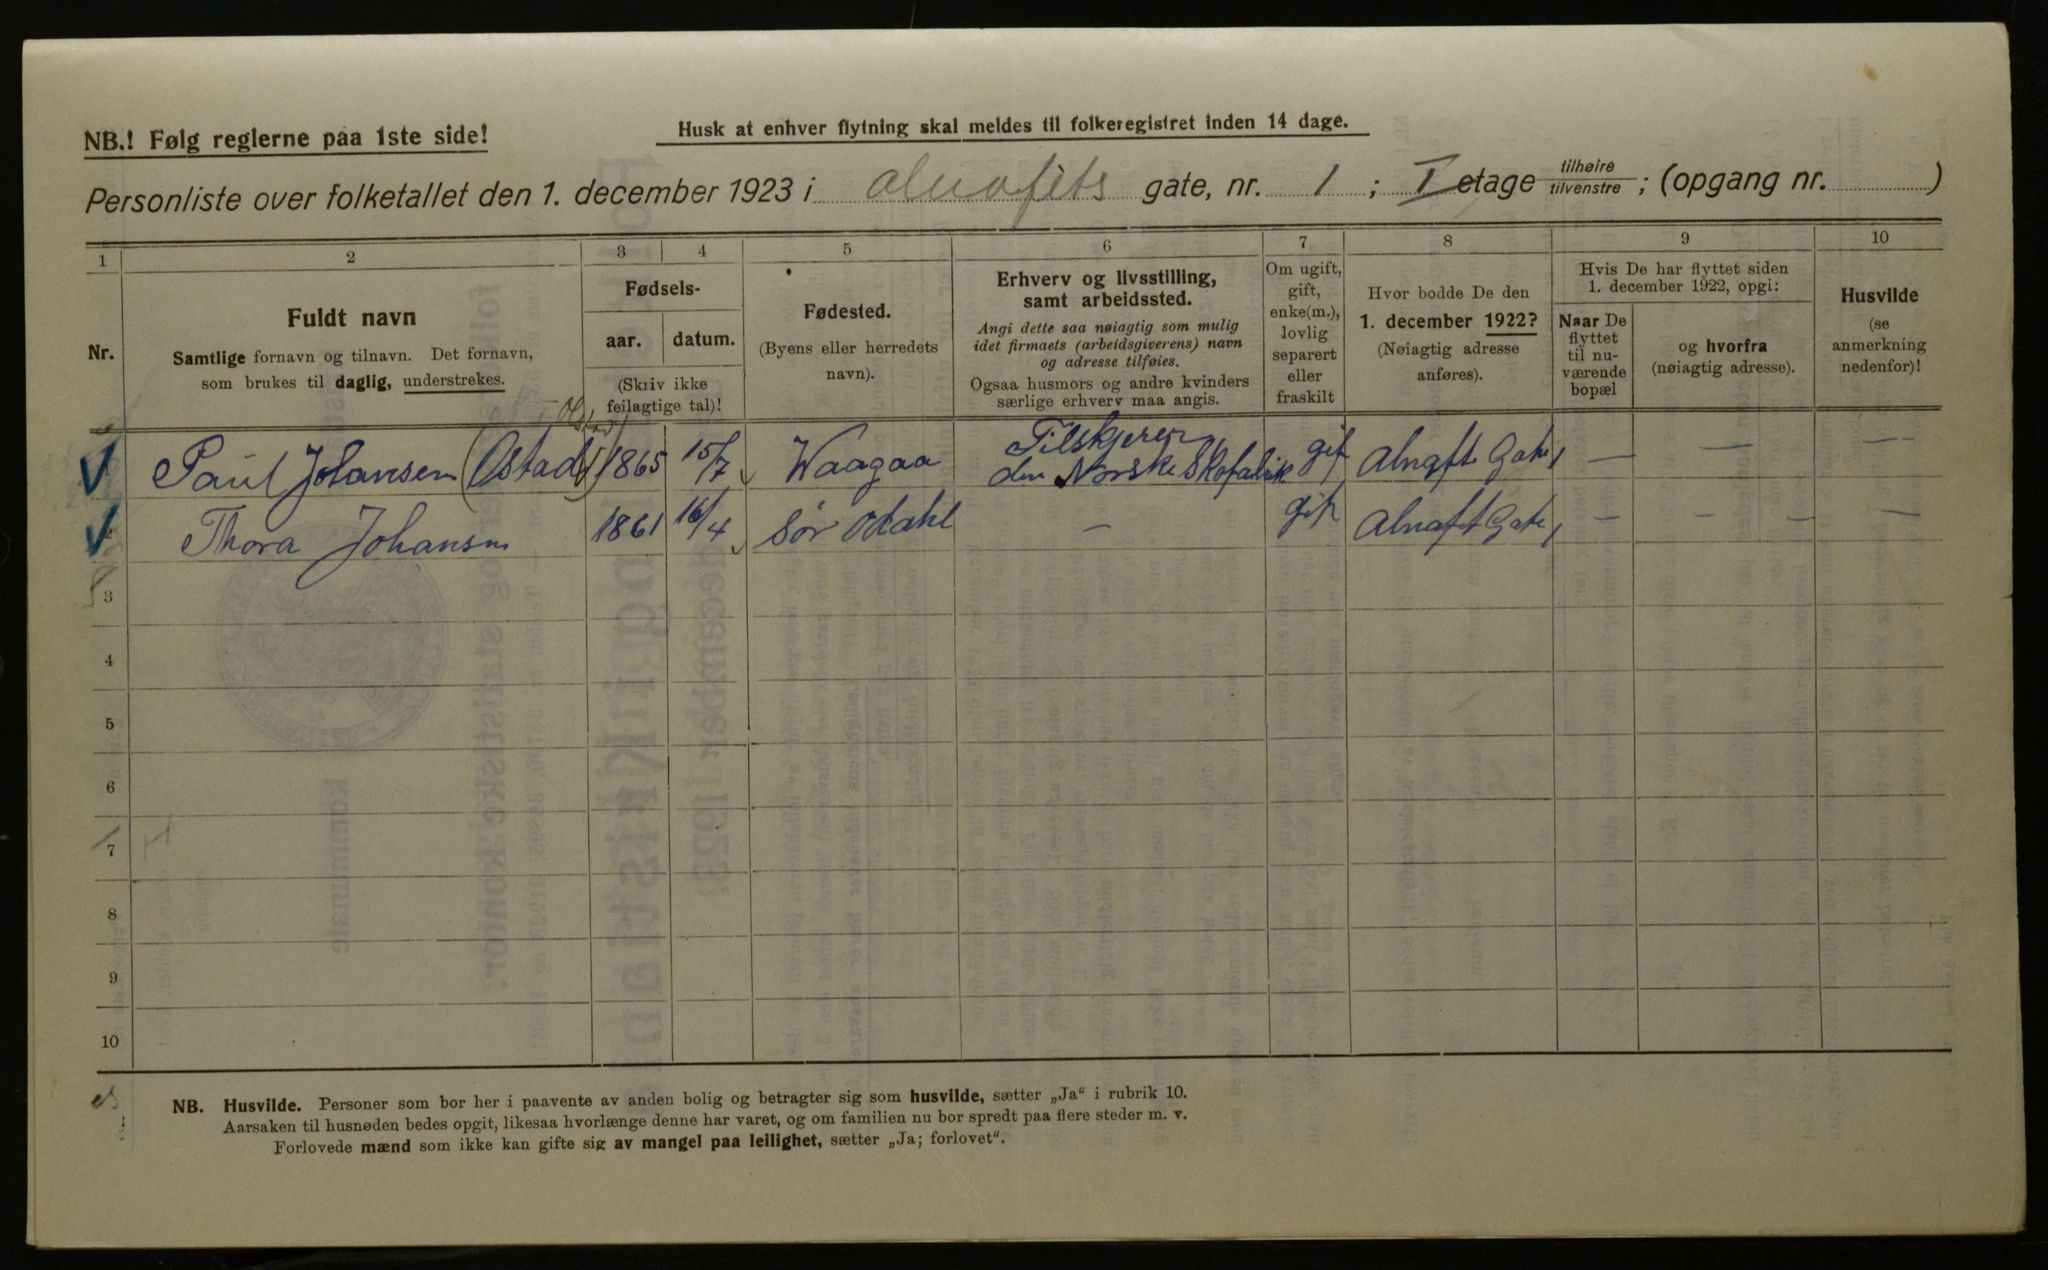 NB.! Følg reglerne paa 1ste side!
Husk at enhver flytning skal meldes til folkeregistret inden 14 dage.
Personliste over folketallet den 1. december 1923 i Alnafets gate, nr. 1 ; I etage tilhøire tilvenstre ; (opgang nr. )
1 2 3 4 5 6 7 8 9 10
Nr.
Fuldt navn
Samtlige fornavn og tilnavn. Det fornavn,
som brukes til daglig, understrekes.
Fødsels-
aar. datum.
(Skriv ikke
feilagtige tal)!
Fødested.
(Byens eller herredets
navn).
Erhverv og livsstilling,
samt arbeidssted.
Angi dette saa nøiagtig som mulig
idet firmaets (arbeidsgiverens) navn
og adresse tilføies.
Ogsaa husmors og andre kvinders
særlige erhverv maa angis.
Om ugift,
gift,
enke(m.),
lovlig
separert
eller
fraskilt
Hvor bodde De den
1. december 1922?
(Nøiagtig adresse
anføres).
Hvis De har flyttet siden
1. december 1922, opgi:
Naar De
flyttet
til nu-
værende
bopæl
og hvorfra
(nøiagtig adresse).
Husvilde
(se
anmerkning
nedenfor)!
Paul Johansen (Ostad) 1865 15/7 Waagaa Tilskjerer den Norske Skofabrik gif Alnaft Gate 1 — — —
Thora Johansen 1861 16/4 Sør Odahl — gif Alnaft Gate 1 — — — —
3
4
5
6
7
8
9
10
NB. Husvilde. Personer som bor her i paavente av anden bolig og betragter sig som husvilde, sætter „Ja“ i rubrik 10.
Aarsaken til husnøden bedes opgit, likesaa hvorlænge denne har varet, og om familien nu bor spredt paa flere steder m. v.
Forlovede mænd som ikke kan gifte sig av mangel paa leilighet, sætter „Ja; forlovet“.